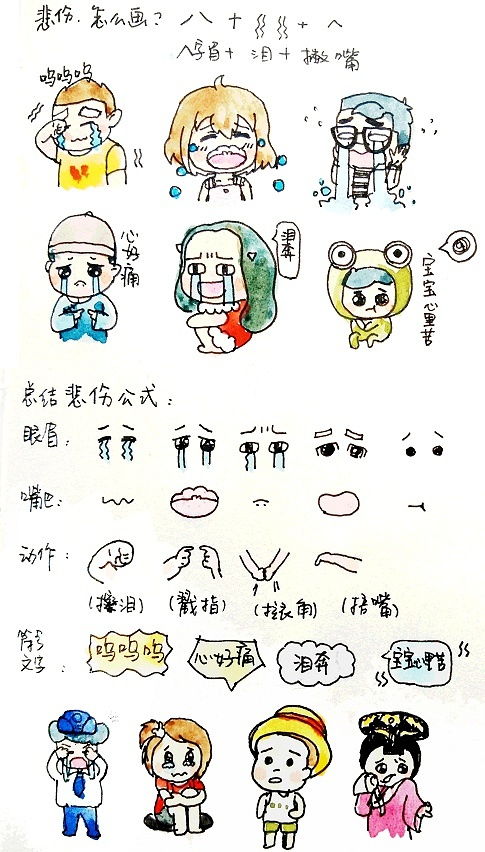 悲伤，怎么画？ 八 + + ヘ
八字眉 + 泪 + 撇嘴
呜呜呜
心好痛
泪奔
宝宝心里苦
总结悲伤公式：
眼眉：
嘴巴：
动作：
(擦泪) (戳指) (拉衣角) (捂嘴)
文字：
呜呜呜 心好痛 泪奔 宝宝心里苦